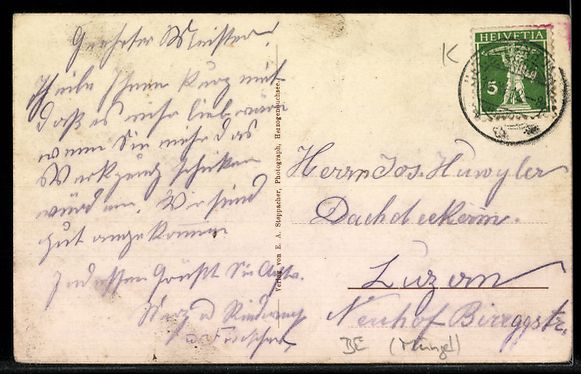 Geehrter Meister!
Theile Ihnen kurz mit
daß es mir lieb wäre
wenn Sie mir das
Werkzeug schicken
würden. Wir sind
gut angekommen
Indessen Grüßt Sie
Verlag von E. A. Steppacher, Photograph, Herzogenbuchsee.
K
HELVETIA
5
Herrn Jos. Huwyler
Dachdeckerm.
Luzern
Neuhof Bireggstr.
BE